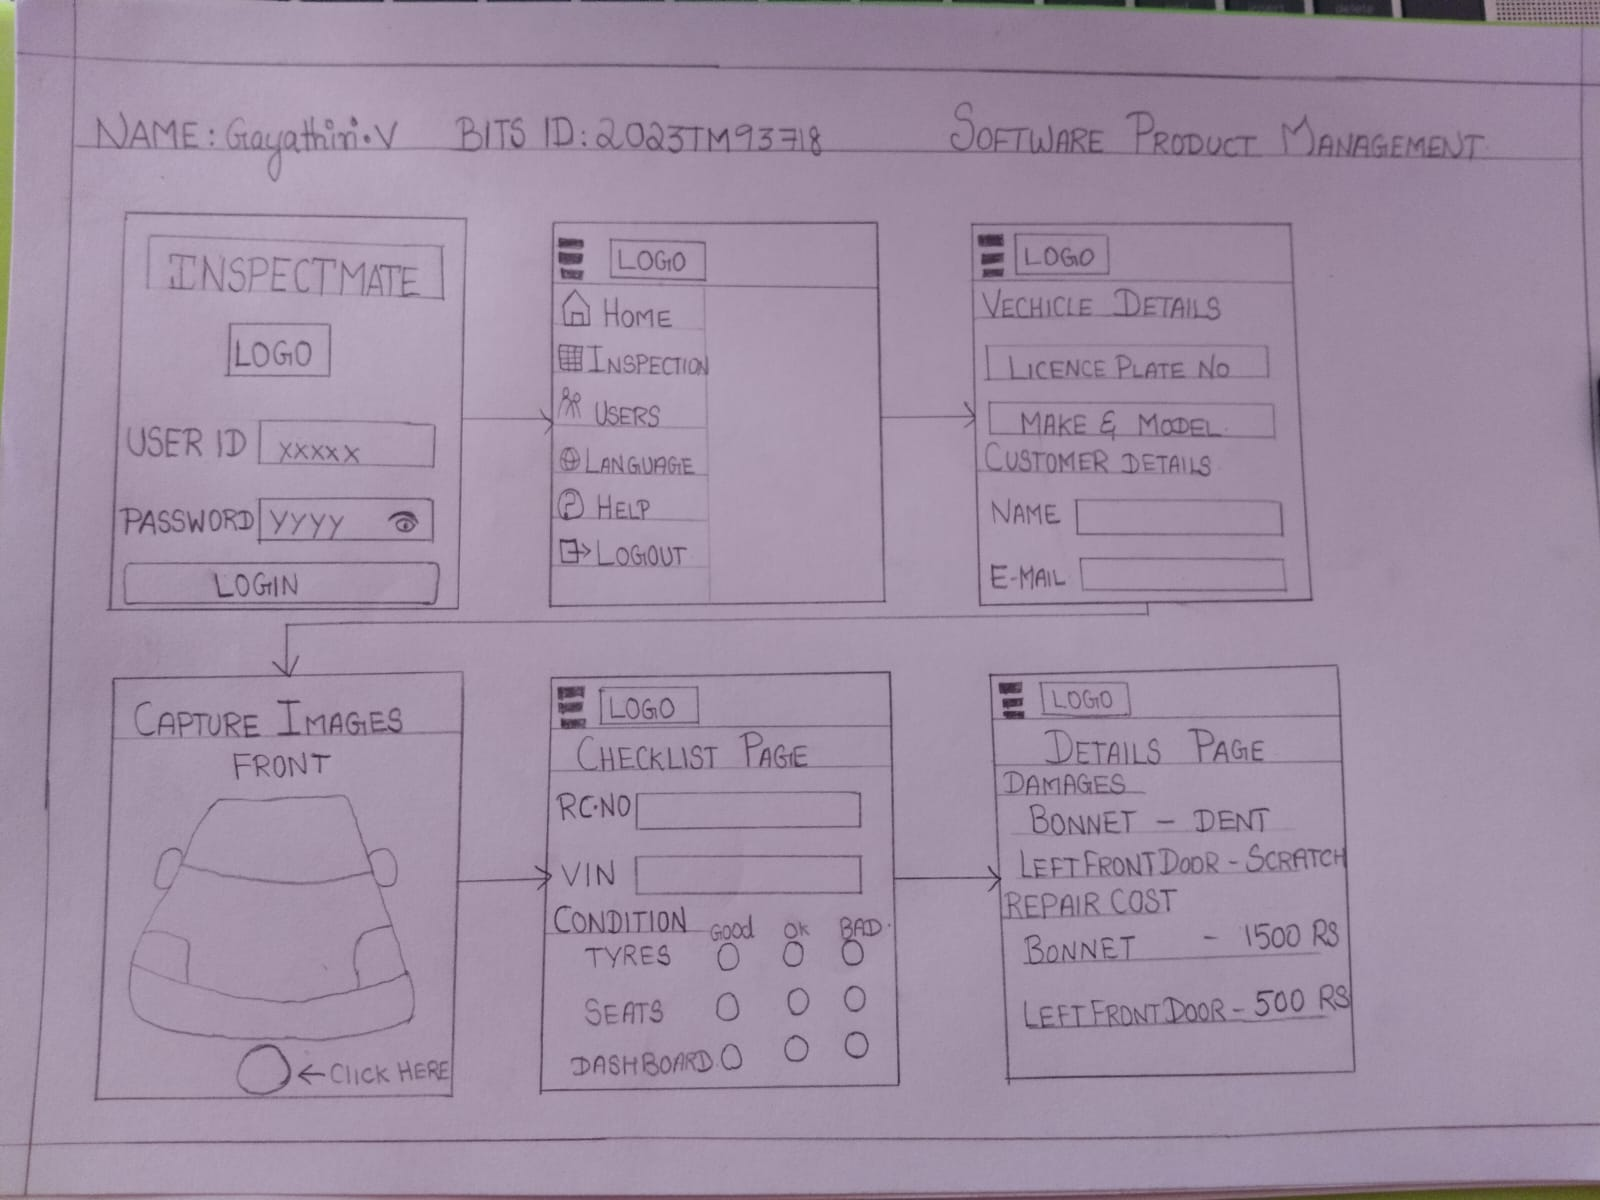 NAME: Gayathiri.V BITS ID: 2023TM93718 SOFTWARE PRODUCT MANAGEMENT
INSPECTMATE
LOGO
USER ID XXXXX
PASSWORD YYYY
LOGIN
LOGO
HOME
INSPECTION
USERS
LANGUAGE
HELP
LOGOUT
LOGO
VECHICLE DETAILS
LICENCE PLATE NO
MAKE & MODEL
CUSTOMER DETAILS
NAME
E-MAIL
CAPTURE IMAGES
FRONT
←CLICK HERE
LOGO
CHECKLIST PAGE
RC.NO
VIN
CONDITION GOOD OK BAD
TYRES
SEATS
DASHBOARD
LOGO
DETAILS PAGE
DAMAGES
BONNET - DENT
LEFT FRONT DOOR - SCRATCH
REPAIR COST
BONNET - 1500 RS
LEFT FRONT DOOR - 500 RS